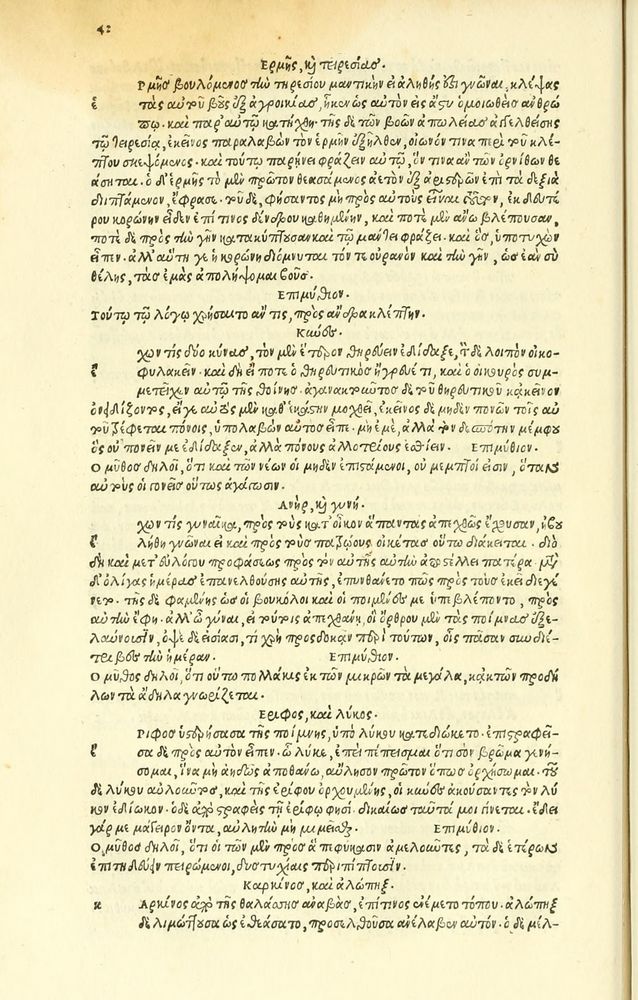 42
Ερμῆς, καὶ τειρεσίας.
Ρμῆς βουλόμενος τὴν τηρεσίου μαντικὴν εἰ ἀληθής ἐστι γνῶναι, κλέψας
ἑ τὰς αὐτοῦ βοῦς ἐξ ἀγροικίας, ἧκεν ὡς αὐτὸν εἰς ἄστυ ὁμοιωθεὶς ἀνθρώ
πῳ. καὶ παρ' αὐτῷ κατήχθη. τῆς δὲ τῶν βοῶν ἀπωλείας ἀγγελθείσης
τῷ τειρεσίᾳ, ἐκεῖνος παραλαβὼν τὸν ἑρμῆν ἐξῆλθεν, οἰωνόν τινα περὶ τοῦ κλέ-
πτου σκεψόμενος. καὶ τούτῳ παρῄνει φράζειν αὐτῷ, ὅν τινα ἂν τῶν ὀρνίθων θε
άσηται. ὁ δ' ἑρμῆς τὸ μὲν πρῶτον θεασάμενος ἀετὸν ἐξ ἀριστερῶν ἐπὶ τὰ δεξιὰ
διιπτάμενον, ἔφρασε. τοῦ δὲ, φήσαντος μὴ πρὸς αὐτοὺς εἶναι τοῦτον, ἐκ δευτέ
ρου κορώνην εἶδεν ἐπί τινος δένδρου καθημένην, καὶ ποτὲ μὲν ἄνω βλέπουσαν,
ποτὲ δὲ πρὸς τὴν γῆν κατακύπτουσαν καὶ τῷ μάντει φράζει. καὶ ὃς, ὑποτυχὼν
εἶπεν. ἀλλ' αὕτη γε ἡ κορώνη διόμνυται τόν τε οὐρανὸν καὶ τὴν γῆν, ὡς ἐὰν σὺ
θέλῃς, τὰς ἐμὰς ἀπολήψομαι βοῦς.
Επιμύθιον.
Τούτῳ τῷ λόγῳ χρήσαιτο ἄν τις, πρὸς ἄνδρα κλέπτην.
Κύνες.
χων τὶς δύο κύνας, τὸν μὲν ἕτερον θηρεύειν ἐδίδαξε, τὸν δὲ λοιπὸν οἰκο-
ἑ φυλακεῖν. καὶ δὴ εἴ ποτε ὁ θηρευτικὸς ἤγρευέ τι, καὶ ὁ οἰκουρὸς συμ-
μετεῖχεν αὐτῷ τῆς θοίνης. ἀγανακτοῦντος δὲ τοῦ θηρευτικοῦ κἀκεῖνον
ὀνειδίζοντος, εἴγε αὐτὸς μὲν καθ' ἑκάστην μοχθεῖ, ἐκεῖνος δὲ μηδὲν πονῶν τοῖς αὐ
τοῦ τρέφεται πόνοις, ὑπολαβὼν αὐτὸς εἶπε. μὴ ἐμὲ, ἀλλὰ τὸν δεσπότην μέμφου
ὃς οὐ πονεῖν με ἐδίδαξεν, ἀλλὰ πόνους ἀλλοτρίους ἐσθίειν. Επιμύθιον.
Ο μῦθος δηλοῖ, ὅτι καὶ τῶν νέων οἱ μηδὲν ἐπιστάμενοι, οὐ μεμπτοί εἰσιν, ὅταν
αὐτοὺς οἱ γονεῖς οὕτως ἀγάγωσιν.
Ανὴρ, καὶ γυνή.
χων τὶς γυναῖκα, πρὸς τοὺς κατ' οἶκον ἅπαντας ἀπεχθῶς ἔχουσαν, ἠβου
ἑ λήθη γνῶναι εἰ καὶ πρὸς τοὺς πατρῴους οἰκέτας οὕτω διάκειται. διὸ
δὴ καὶ μετ' εὐλόγου προφάσεως πρὸς τὸν αὐτῆς αὐτὴν ἀποστέλλει πατέρα. μετὰ
δ' ὀλίγας ἡμέρας ἐπανελθούσης αὐτῆς, ἐπυνθάνετο πῶς πρὸς τοὺς ἐκεῖ διεγέ
νετο. τῆς δὲ φαμένης ὡς οἱ βουκόλοι καὶ οἱ ποιμένες με ὑπεβλέποντο, πρὸς
αὐτὴν ἔφη. ἀλλ' ὦ γύναι, εἰ τούτοις ἀπεχθάνῃ, οἳ ὄρθρου μὲν τὰς ποίμνας ἐξε-
λαύνουσιν, ὀψὲ δὲ εἰσίασι, τί χρὴ προσδοκᾶν περὶ τούτων, οἷς πᾶσαν συνδιέ-
τριβες τὴν ἡμέραν. Επιμύθιον.
Ο μῦθος δηλοῖ, ὅτι οὕτω πολλάκις ἐκ τῶν μικρῶν τὰ μεγάλα, κἀκ τῶν προδή
λων τὰ ἄδηλα γνωρίζεται.
Εριφος, καὶ λύκος.
Ριφος ὑστερήσασα τῆς ποίμνης, ὑπὸ λύκου κατεδιώκετο. ἐπιστραφεῖ-
ἑ σα δὲ πρὸς αὐτὸν εἶπεν. ὦ λύκε, ἐπεὶ πέπεισμαι ὅτι σὸν βρῶμα γενή-
σομαι, ἵνα μὴ ἀηδῶς ἀποθάνω, αὔλησον πρῶτον ὅπως ὀρχήσωμαι. τοῦ
δὲ λύκου αὐλοῦντος, καὶ τῆς ἐρίφου ὀρχουμένης, οἱ κύνες ἀκούσαντες τὸν λύ
κον ἐδίωκον. ὁ δὲ ἐπιστραφεὶς τῇ ἐρίφῳ φησί. δικαίως ταῦτά μοι γίνεται. ἔδει
γάρ με μάγειρον ὄντα, αὐλητὴν μὴ μιμεῖσθαι. Επιμύθιον.
Ο μῦθος δηλοῖ, ὅτι οἱ τῶν μὲν πρὸς ἃ πεφύκασιν ἀμελοῦντες, τὰ δὲ ἑτέρων
ἐπιτηδεύειν πειρώμενοι, δυστυχίαις περιπίπτουσιν.
Καρκίνος, καὶ ἀλώπηξ.
κ Αρκίνος ἀπὸ τῆς θαλάσσης ἀναβὰς, ἐπί τινος ἐνέμετο τόπου. ἀλώπηξ
δὲ λιμώττουσα ὡς ἐθεάσατο, προσελθοῦσα ἀνέλαβεν αὐτόν. ὁ δὲ μέλ-